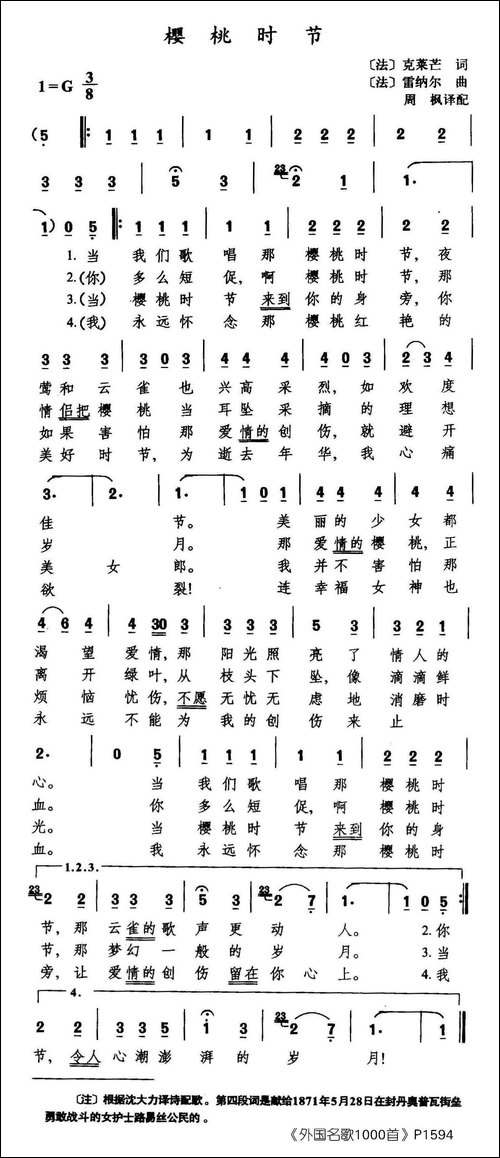 樱桃时节
〔法〕克莱芒 词
1=G 3/8
〔法〕雷纳尔 曲
周 枫译配
(5 ‖: 1 1 1 | 1 1 | 2 2 2 | 2 2 |
3 3 3 | 3 3 3 | 5 3 | 23 2 1 | 1· |
1) 0 5 ‖: 1 1 1 | 1 1 | 2 2 2 | 2 2 2 |
1.当 我们歌 唱那 樱桃时 节,夜
2.(你) 多么短 促,啊 樱桃时 节,那
3.(当) 樱桃时 节来到 你的身 旁,你
4.(我) 永远怀 念那 樱桃红 艳的
3 3 3 | 3 0 3 | 4 4 4 | 4 0 3 | 2 3 4 |
莺和云 雀也 兴高采 烈,如 欢度
情侣把樱 桃当 耳坠采 摘的 理想
如果害 怕那 爱情的创 伤,就 避开
美好时 节,为 逝去年 华,我 心痛
3· | 2· | 1· | 1 0 1 | 4 4 4 | 4 4 4 |
佳 节。 美 丽的少 女都
岁 月。 那 爱情的樱 桃,正
美 女 郎。 我 并不害 怕那
欲 裂! 连 幸福女 神也
4 6 4 | 4 30 3 | 3 3 3 | 5 3 | 3 2 1 |
渴望 爱情,那 阳光照 亮了 情人的
离开 绿叶,从 枝头下 坠,像 滴滴鲜
烦恼 忧伤,不愿 无忧无 虑地 消磨时
永远 不能为 我的创 伤来 止
2· | 0 5 | 1 1 1 | 1 1 | 2 2 2 |
心。 当 我们歌 唱那 樱桃时
血。 你 多么短 促,啊 樱桃时
光。 当 樱桃时 节来到 你的身
血。 我 永远怀 念那 樱桃时
1.2.3.
23 2 2 | 3 3 3 | 5 3 | 23 2 7 | 1· | 1 0 5 :‖
节,那 云雀的歌 声更 动 人。 2.你
节,那 梦幻一 般的 岁 月。 3.当
旁,让 爱情的创 伤留在 你心 上。 4.我
4.
2 2 | 3 3 5 | i 3 | 23 2 7 | 1· | 1· ‖
节,令人 心潮澎 湃的 岁 月!
〔注〕根据沈大力译诗配歌。第四段词是献给1871年5月28日在封丹奥普瓦街垒
勇敢战斗的女护士路易丝公民的。
《外国名歌1000首》P1594